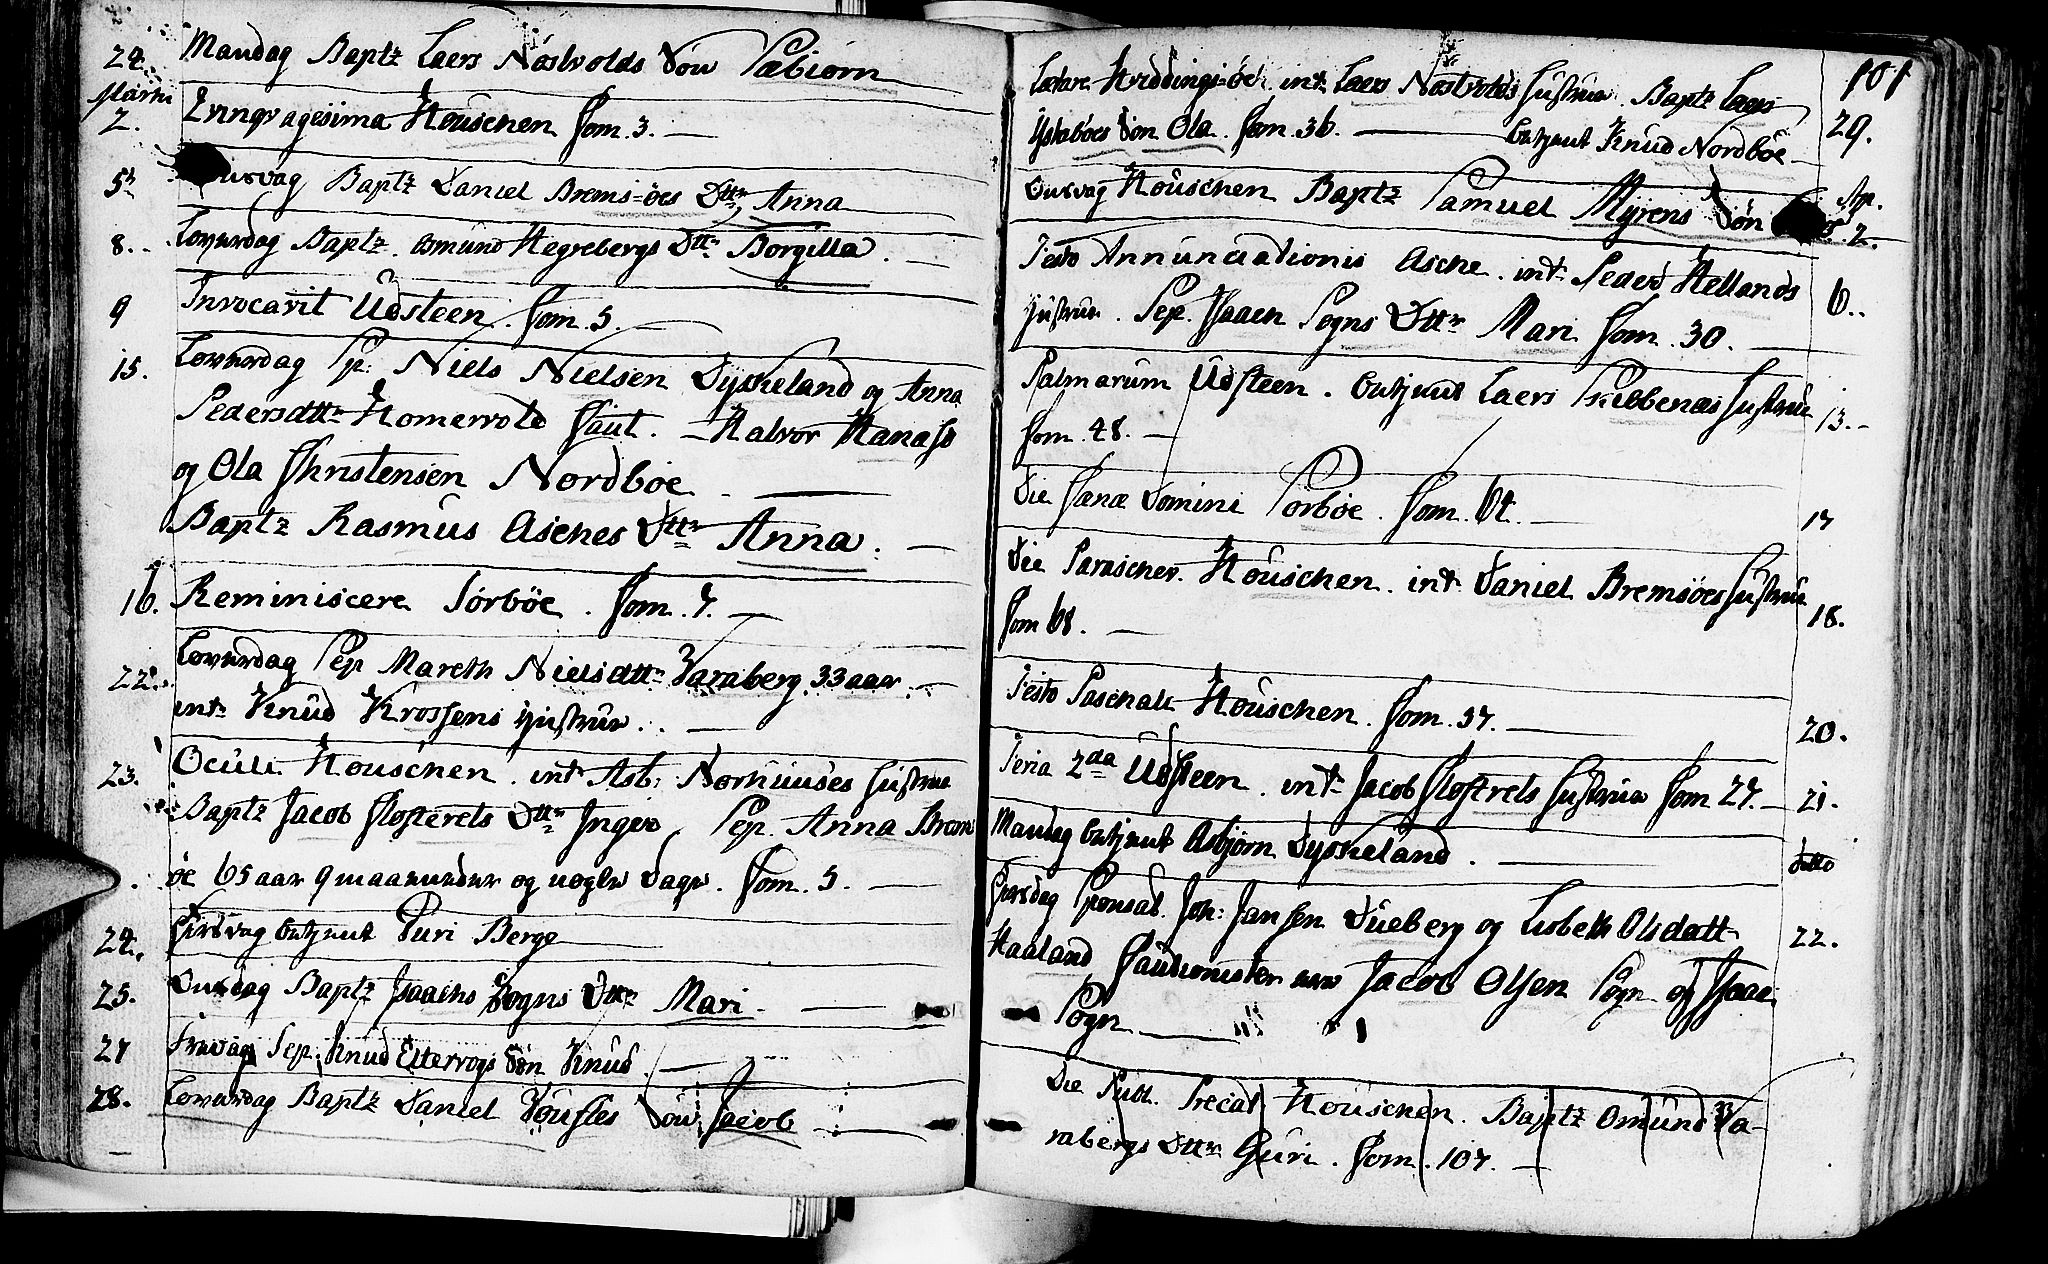 24. Mandag Baptz Laers Nåstvolds Sön Sæbiorn
Martii
2. Qvinqvagesima Höuschen Com. 3.
5. Onsdag Baptz Daniel Brems-öes Dttr Anna
8. Löverdag Baptz Omund Hegrebergs Dttr Borgilla.
9 Invocavit Udsteen. Com. 5.
15. Löverdag Sp. Niels Nielsen Dyskeland og Anna
Pedersdttr Homervold Caut. Halvor Hanasb
og Ola Christensen Nordböe.
Baptz Rasmus Asches Dttr Anna.
16. Reminiscere Sörböe. Com. 7.
22. Löverdag Sep. Mareth Nielsdttr Varaberg 33 aar
int. Knud Krossens Hustrue.
23. Oculi Höuschen. int. Asb: Norhuuses Hustrue
Baptz Jacob Closterets Dttr Inger. Sep. Anna Brem
öe 65 aar 9 maaneder og nogle Dage. Com. 5.
24. betjent Guri Berge
25. Onsdag Baptz Isaachs Sogns Dttr Mari.
27 Fredag Sep. Knud Ettervogs Sön Knud.
28. Löverdag Baptz Daniel Sön Jacob
101
Lætare Hviddings-öe. int. Laers Nåstvolds Hustrue. Baptz Laers
Ystaböes Sön Ola. Com. 36. betjent Knud Nordböe 29.
Apr.
Onsdag Höuschen Baptz Samuel Myrens Sön 2.
Festo Annunciationis Asche. int. Peder Hellands 6.
Hustrue. Sep. Isaach Sogns Dttr Mari Com. 30.
Palmarum Udsteen. betjent Laers Skebbenæs Hustrue 13.
Com. 48.
Die Cænæ Domini Sörböe. Com. 64. 17
Die Parascev. Höuschen. int. Daniel Bremsöes Hustrue
Com 68. 18.
Festo Paschali Höuschen. Com. 37. 20.
Feria 2da Udsteen. int. Jacob Closterets Hustrue Com 27. 21.
Mandag betjent Asbjörn Dyskeland. ditto
Tirsdag Sponsal. Joh: Jansen Dueberg og Lisbeth Olsdatt 22.
Haaland Cautionister ere Jacob Olsen Sogn og Isaac
Sogn
Die Publ. Precat. Höuschen. Baptz Omund Va-
rabergs Dttr Guri. Com. 107.